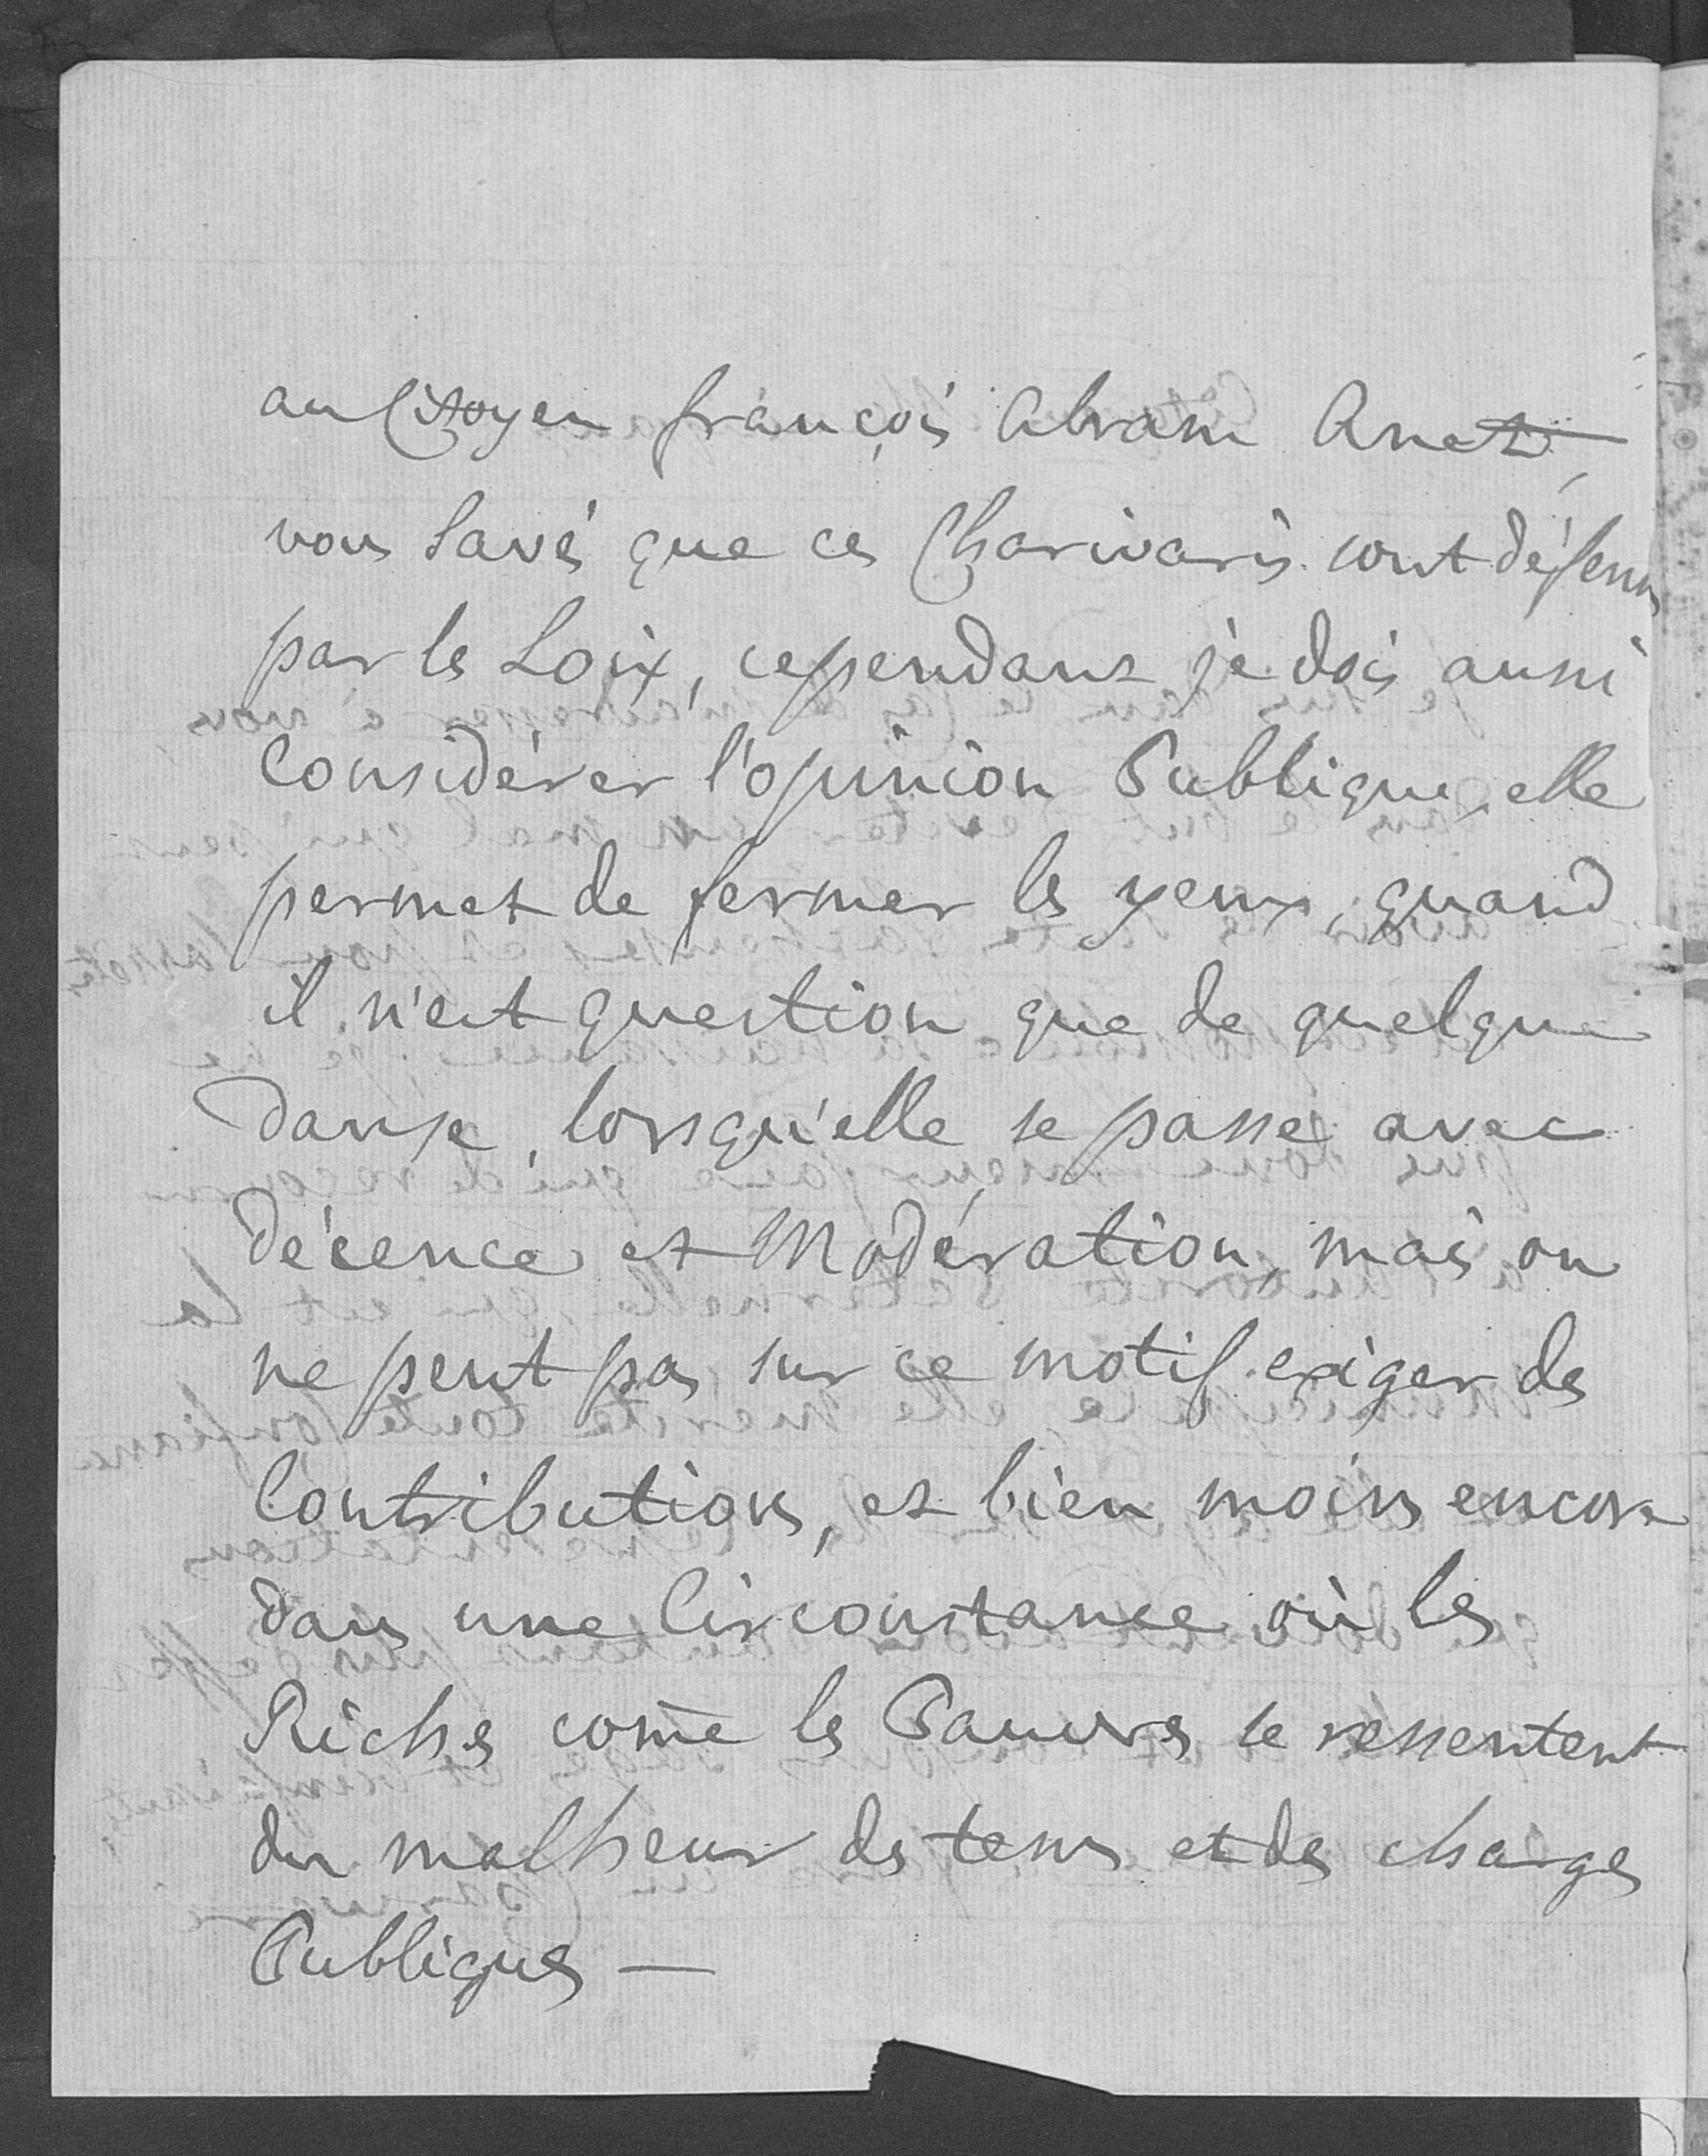 au Citoyen françois Abram Anet,
vous Savés que ces Charivaris sont défenus
par les Loix, cependant je dois aussi
Considérer l'opinion Publique, elle
permet de fermer les yeux, quand
il n'est question que de quelque
Danse, lorsqu'elle se passe avec
Décence et Modération, mais on
ne peut pas sur ce motif exiger des
Contributions, et bien moins encore
dans une Circonstance où les
Riches come les Pauvres se ressentent
du malheur des tems et des charges
Publiques —